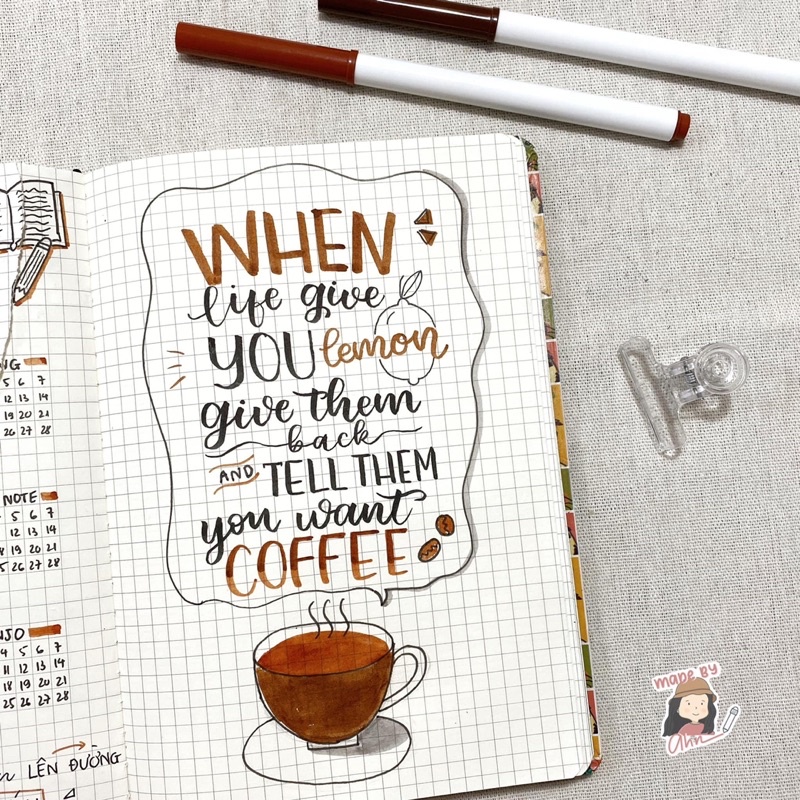 WHEN
life give
YOU lemon
give them
back
AND TELL THEM
you want
COFFEE
5 6 7
12 13 14
19 20 21
26 27 28
NOTE
5 6 7
12 13 14
18 19 20 21
25 26 27 28
4 5 6 7
11 12 13 14
18 19 20 21
25 26 27 28
LÊN ĐƯỜNG
MADE BY